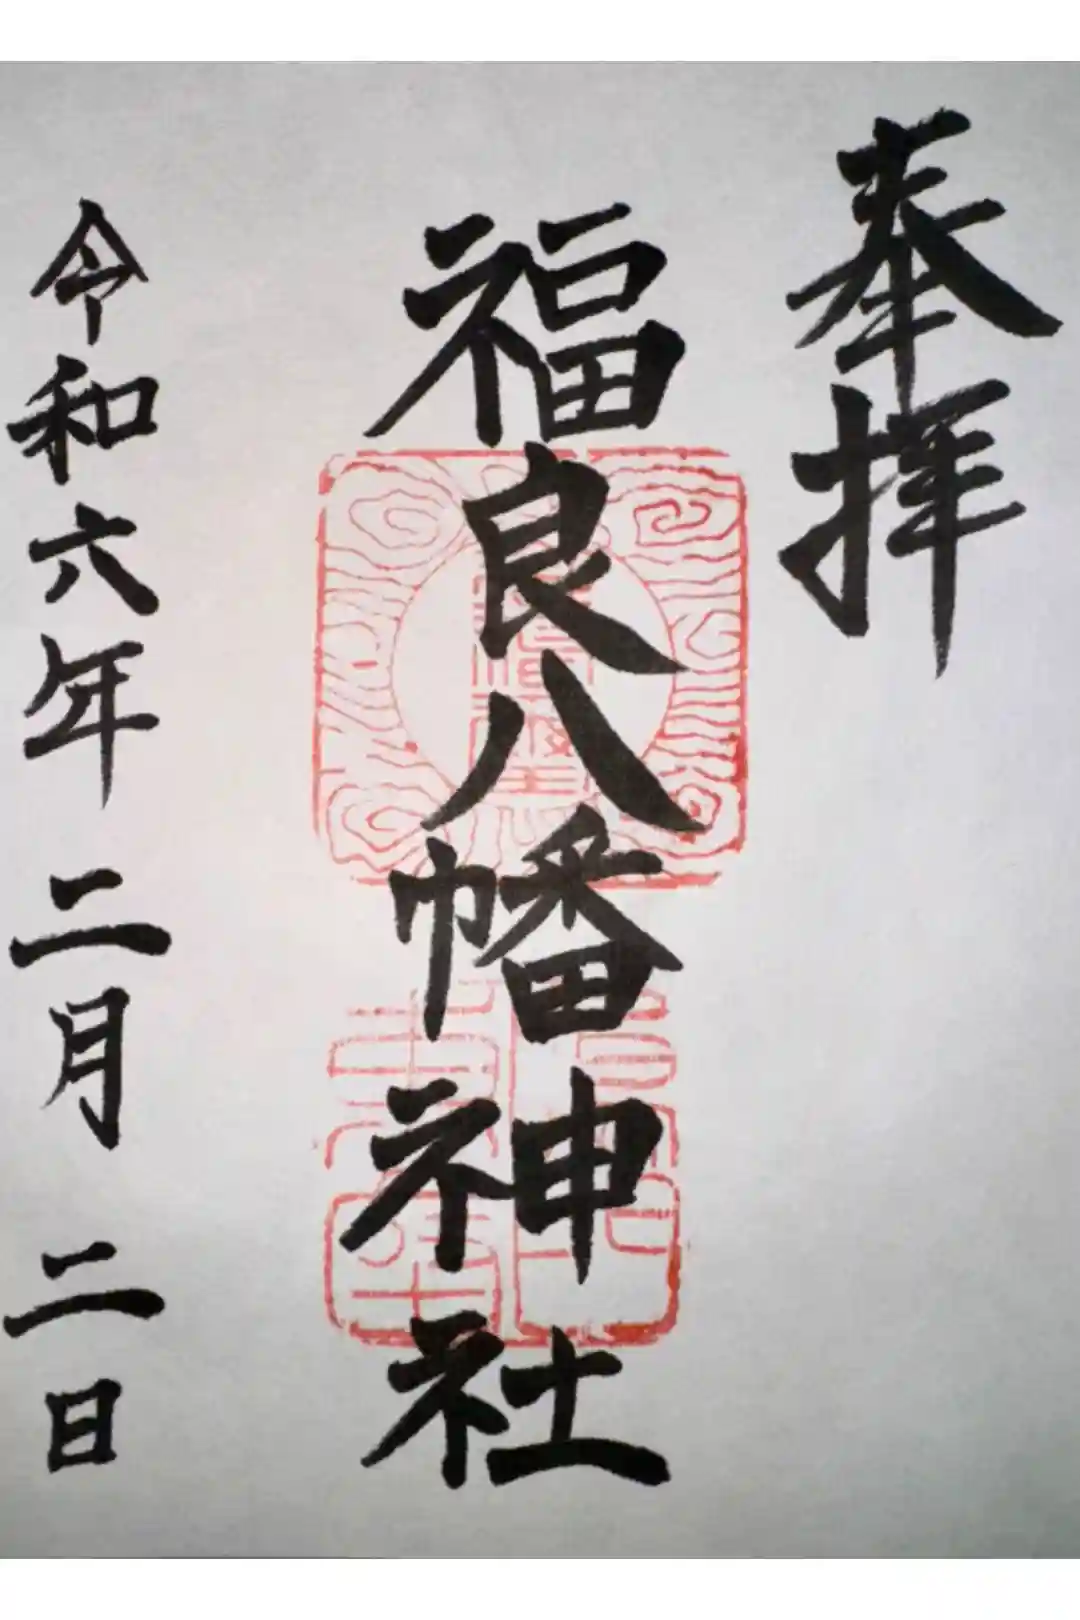 奉拝
福良八幡神社
令和六年二月二日